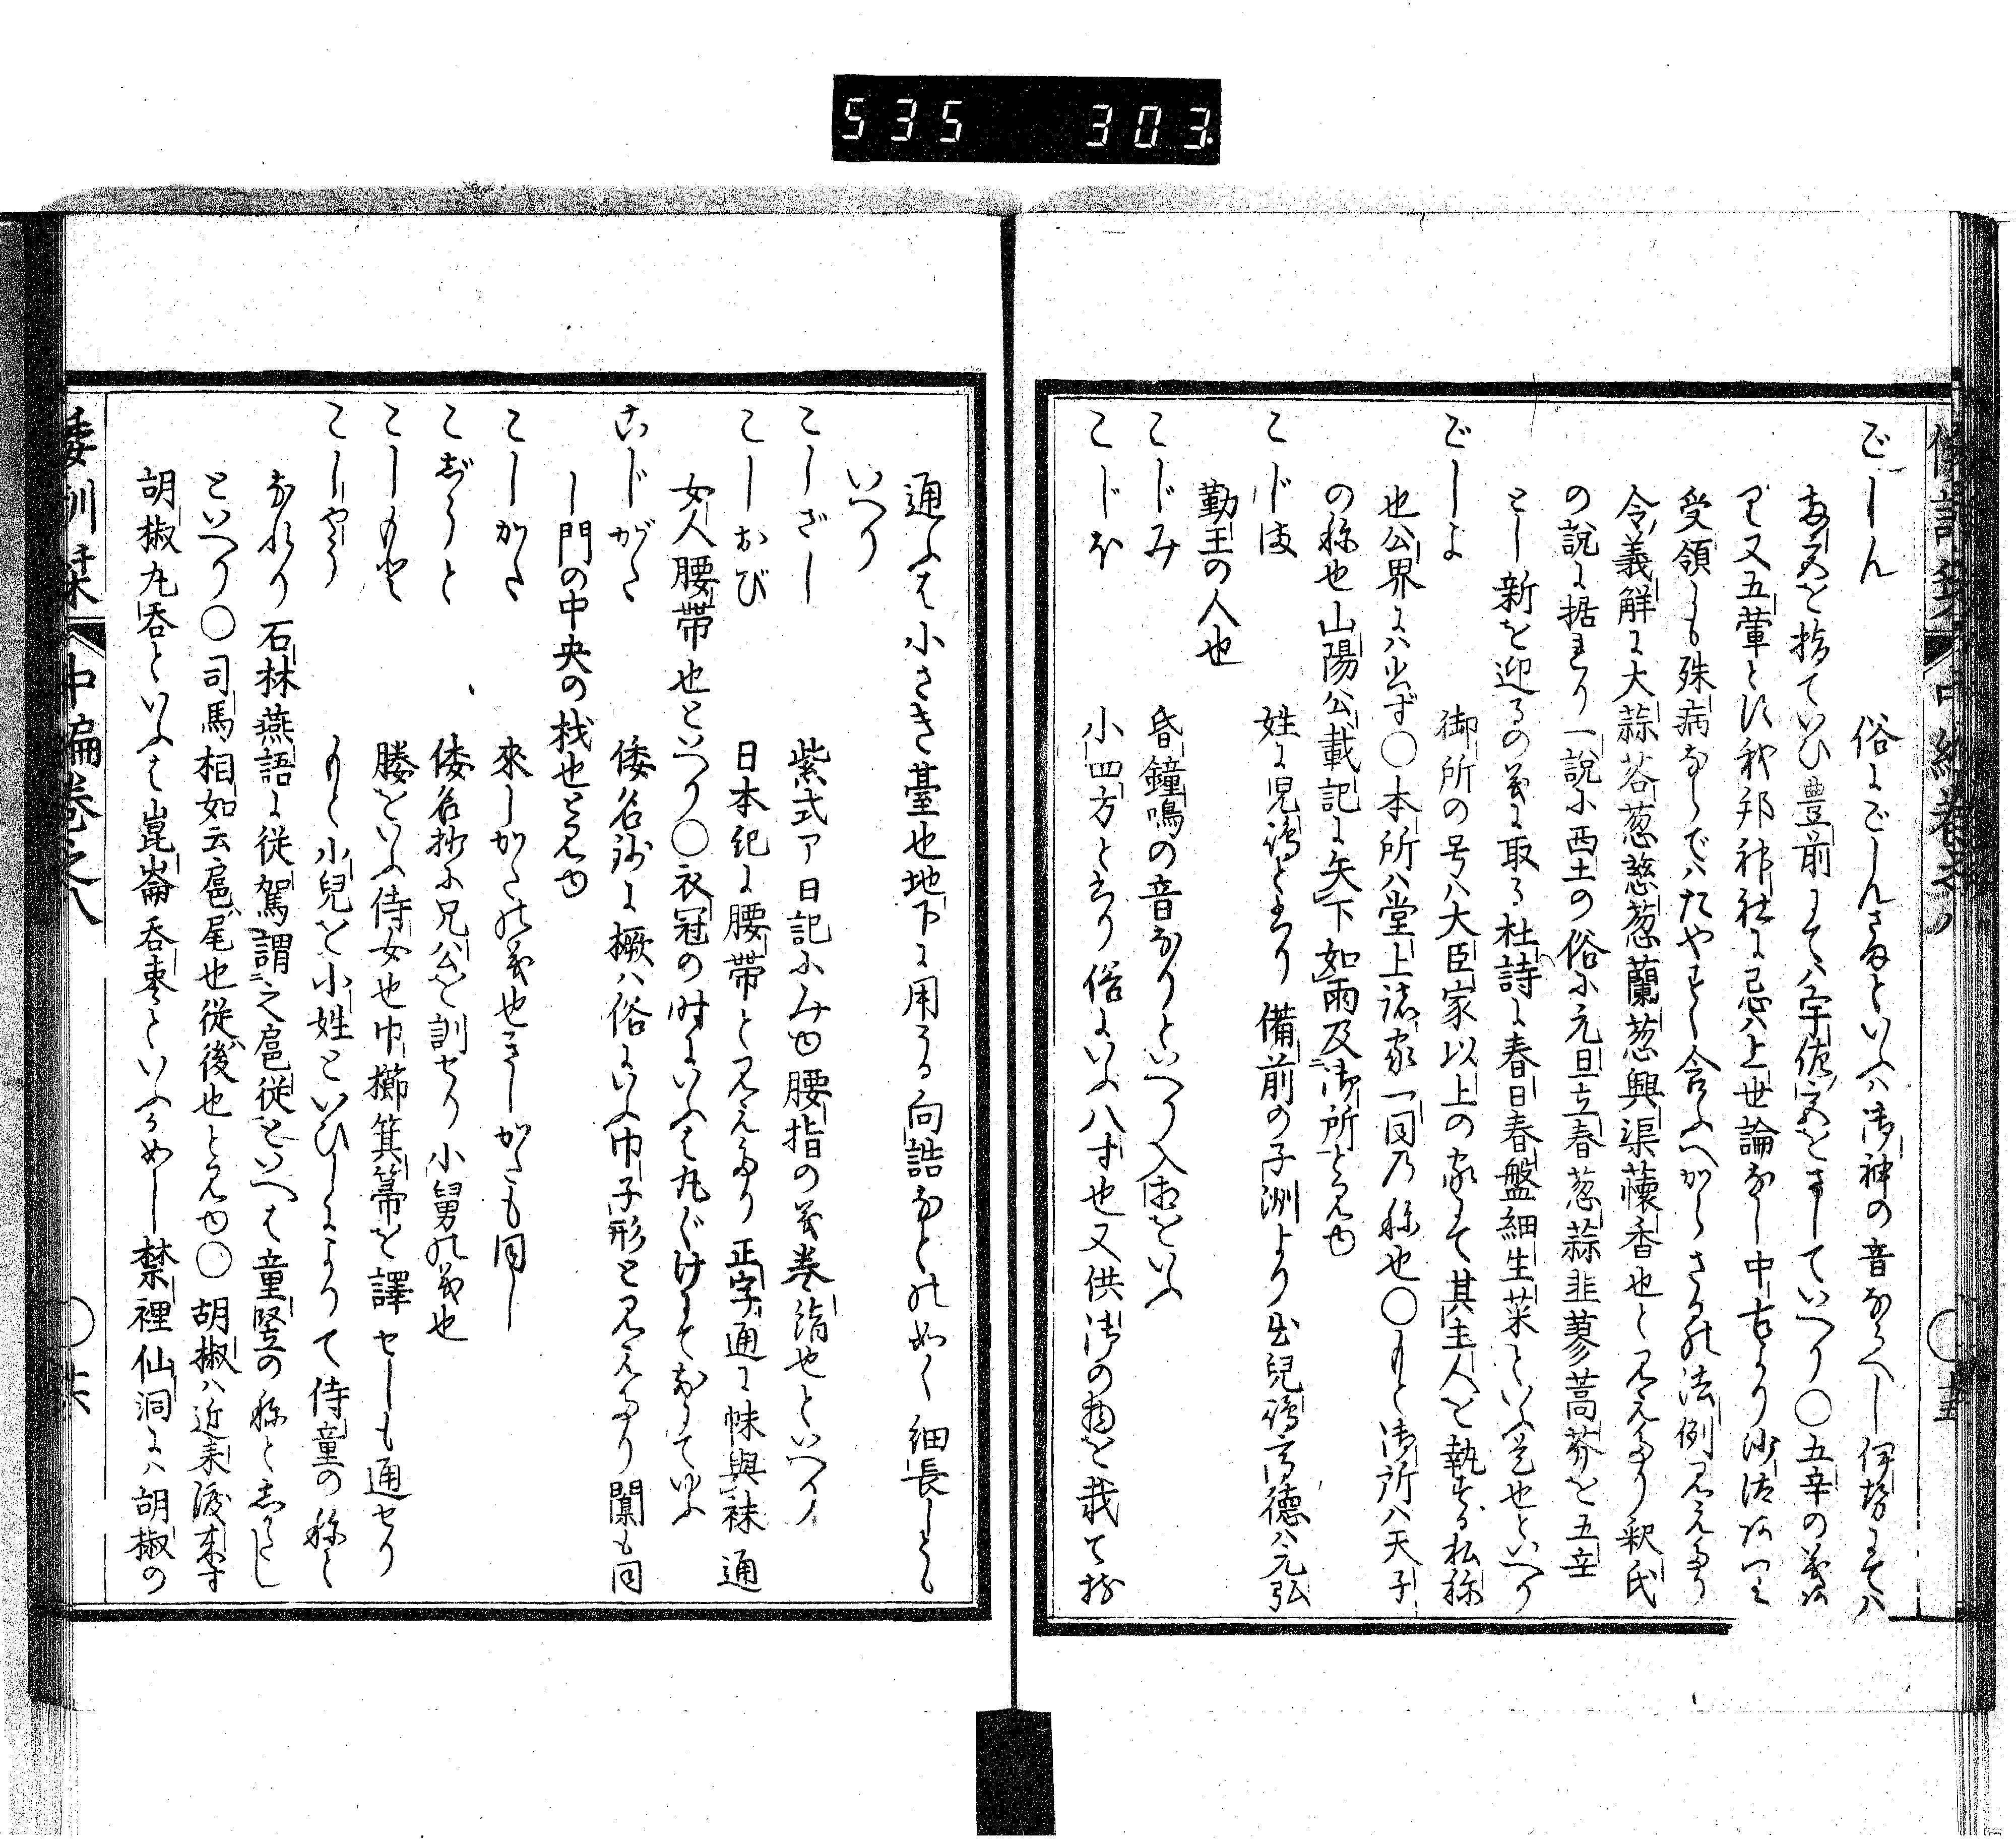 535 303.
ごしん 俗にごしんさまといふハ御神の音なるへし伊勢にてハ
斎宮を指ていひ豊前にてハ宇佐宮をさしていへり○五辛の義
又五葷とす我邦神社に忌ハ上世論なし中古より沙汰
受領しも殊病ならでハたやすく食ふへからさるの法例見えたり
令義解に大蒜茖葱慈葱蘭葱興渠蘹香也と見えたり釈氏
の説に据れり一説に西土の俗に元旦立春葱蒜韭蓼蒿芥を五辛
とし新を迎るの義に取る杜詩に春日春盤細生菜といふ是也といへり
ごしよ 御所の号ハ大臣家以上の家にて其主人を執する私称
也公界にハ出ず○本所ハ堂上諸家一同乃称也○もと御所ハ天子
の称也山陽公載記に矢下如雨及御所と見ゆ
こじま 姓に児嶋とせり備前の子洲より出児嶋高徳ハ元弘
勤王の人也
こじみ 昏鐘鳴の音なりといへり入相をいふ
こじほ 小四方とせり俗にいふ八寸也又供御の物を載て
通ふは小さき臺也地下に用うる向詰なとの如く細長しとも
いへり
こしざし 紫式ア日記にみゆ腰指の義巻絹也といへり
こしおび 日本紀に腰帯と見えたり正字通に帓與袜通
女人腰帯也といへり○衣冠の時にいふは丸ぐけにておりてゆふ
こじがた 倭名鈔に橛ハ俗にいふ巾子形と見えたり闑も同
し門の中央の杙也と見ゆ
こしかた 來しかたの義也きしかたも同し
こじうと 倭名抄に兄公を訓せり小舅の義也
こしもと 媵をいふ侍女也巾櫛箕箒を譯せしも通せり
こしやう もと小兒を小姓といひしによりて侍童の称と
なれり石林燕語に従駕謂之扈従といへは童竪の称としかたし
といへり○司馬相如云扈尾也従後也と見ゆ○胡椒ハ近来渡来す
胡椒丸呑といふは崑崙呑棗といふかめし禁裡仙洞にハ胡椒の
倭訓栞 中編巻之八 ○十五
倭訓栞 中編巻之八 ○十六